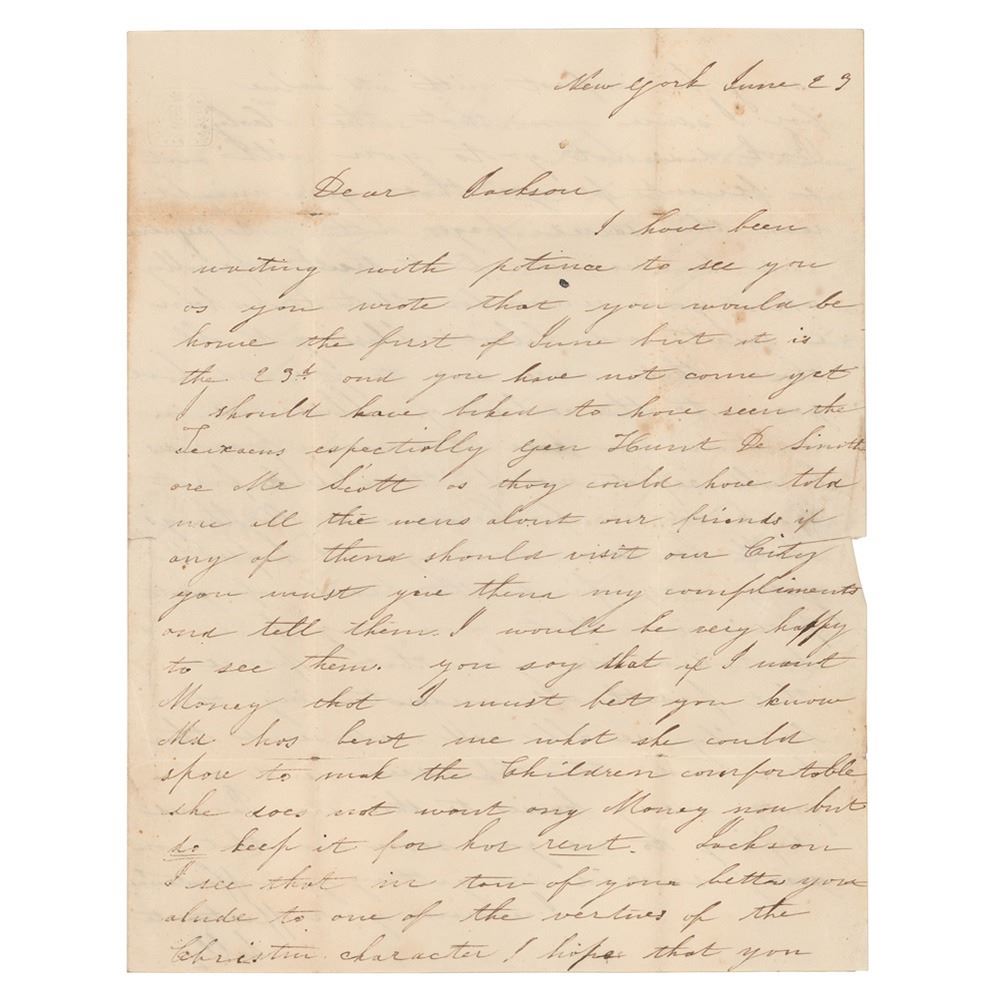 New York June 23
Dear Jackson
I have been
waiting with patince to see you
as you wrote that you would be
home the first of June but it is
the 23d and you have not come yet
I should have liked to have seen the
Teixaens espectially Gen Hunt De Smith
are Mr Scott as thay could have told
me all the wens about our friends if
any of them should visit our City
you must give them my compliments
and tell them I would be very happy
to see them. you say that if I want
Money that I must let you know
Ma has lent me what she could
spare to mak the Children comfortable
she does not want any Money now but
do keep it for her rent. Jackson
I see that in tow of your letter you
alude to one of the vertues of the
Christin character I hope that you